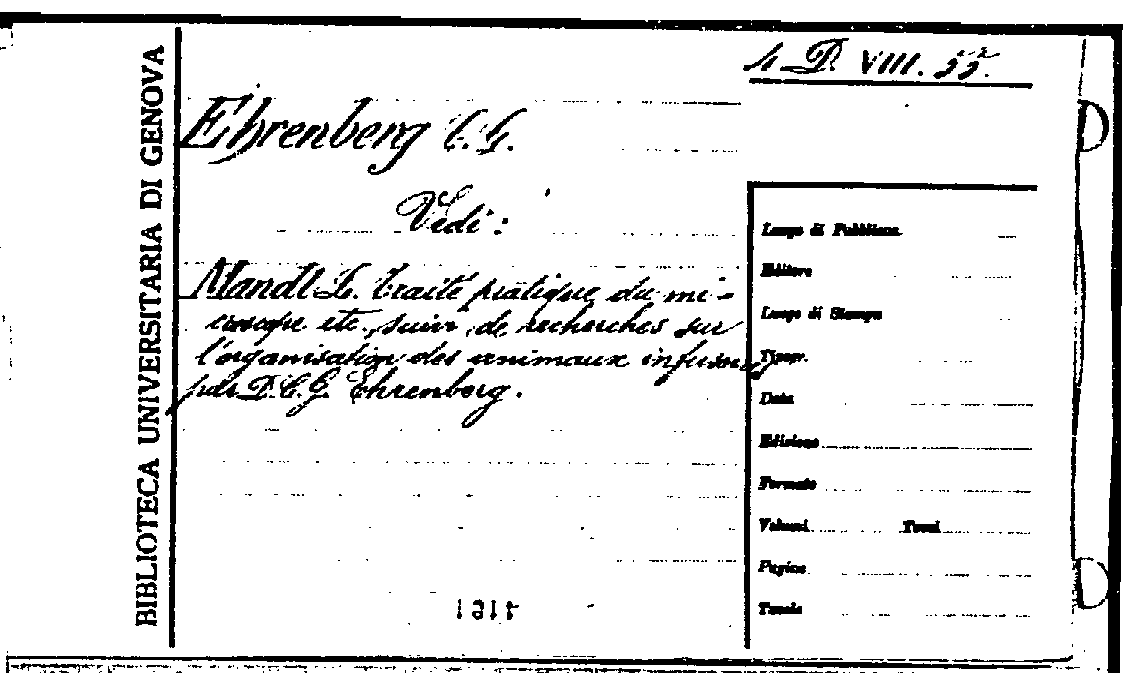 BIBLIOTECA UNIVERSITARIA DI GENOVA
4. D. VIII. 55.
Ehrenberg C. G.
Vedi:
Mandl L. Traité pratique du mi-
croscope etc., suivi de recherches sur
l'organisation des animaux infusoires
par D. C. G. Ehrenberg.
Luogo di Pubblicaz.
Editore
Luogo di Stampa
Tipogr.
Data
Edizione
Formato
Volumi Tomi
Pagine
Tavole